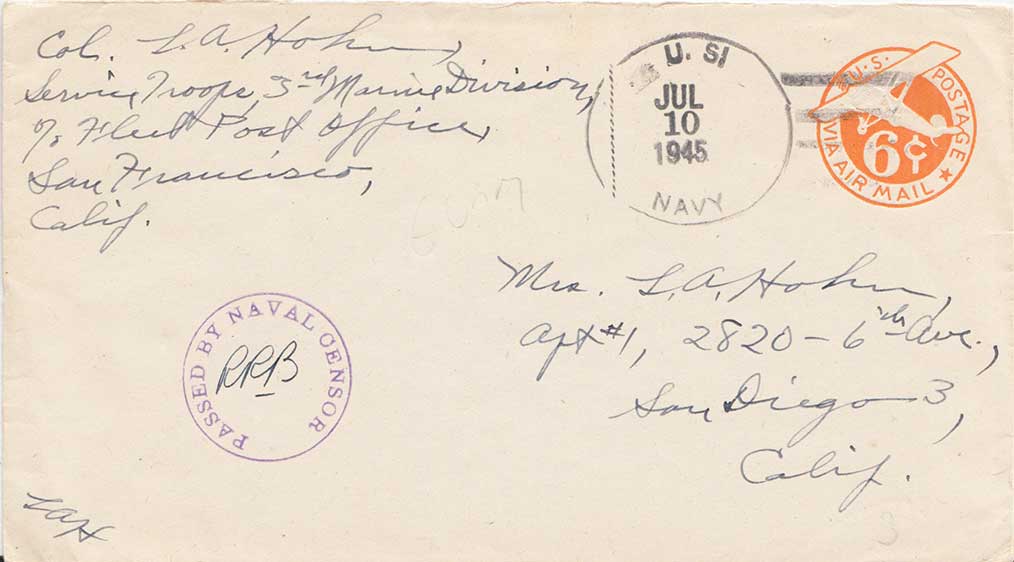 Col. L. A. Hohn,
Service Troops, 3rd Marine Division,
c/o Fleet Post Office,
San Francisco,
Calif.
U. S.
JUL
10
1945
NAVY
U.S. POSTAGE
6¢
VIA AIR MAIL
Mrs. L. A. Hohn,
Apt #1, 2820 - 6th Ave.,
San Diego 3,
Calif.
PASSED BY NAVAL CENSOR
RRB
LAH
3